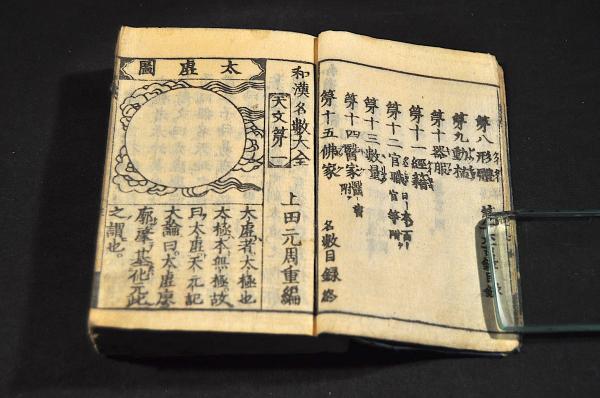 第八形體
第九動植
第十器服
第十一經籍
第十二官職
第十三數量
第十四醫家
第十五佛家
名數目録終
和漢名數大全
天文第一
上田元周重編
太虛圖
太虛者太極也
太極本無極故
曰太虛天元記
大論曰太虛廖
廓肇基化元此
之謂也